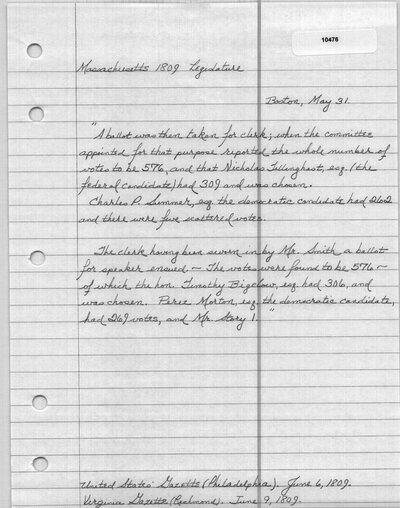 10476
Massachusetts 1809 Legislature
Boston, May 31.
"A ballot was then taken for clerk; when the committee
appointed for that purpose reported the whole number of
votes to be 576, and that Nicholas Tillinghast, esq. (the
federal candidate) had 309 and was chosen.
Charles P. Sumner, esq. the democratic candidate had 262
and there were five scattered votes.
The clerk having been sworn in by Mr. Smith a ballot
for speaker ensued ~ The votes were found to be 576 ~
of which the hon. Timothy Bigelow, esq. had 306, and
was chosen. Perez Morton, esq. the democratic candidate,
had 269 votes, and Mr. Story 1."
United States' Gazette (Philadelphia). June 6, 1809.
Virginia Gazette (Richmond). June 9, 1809.